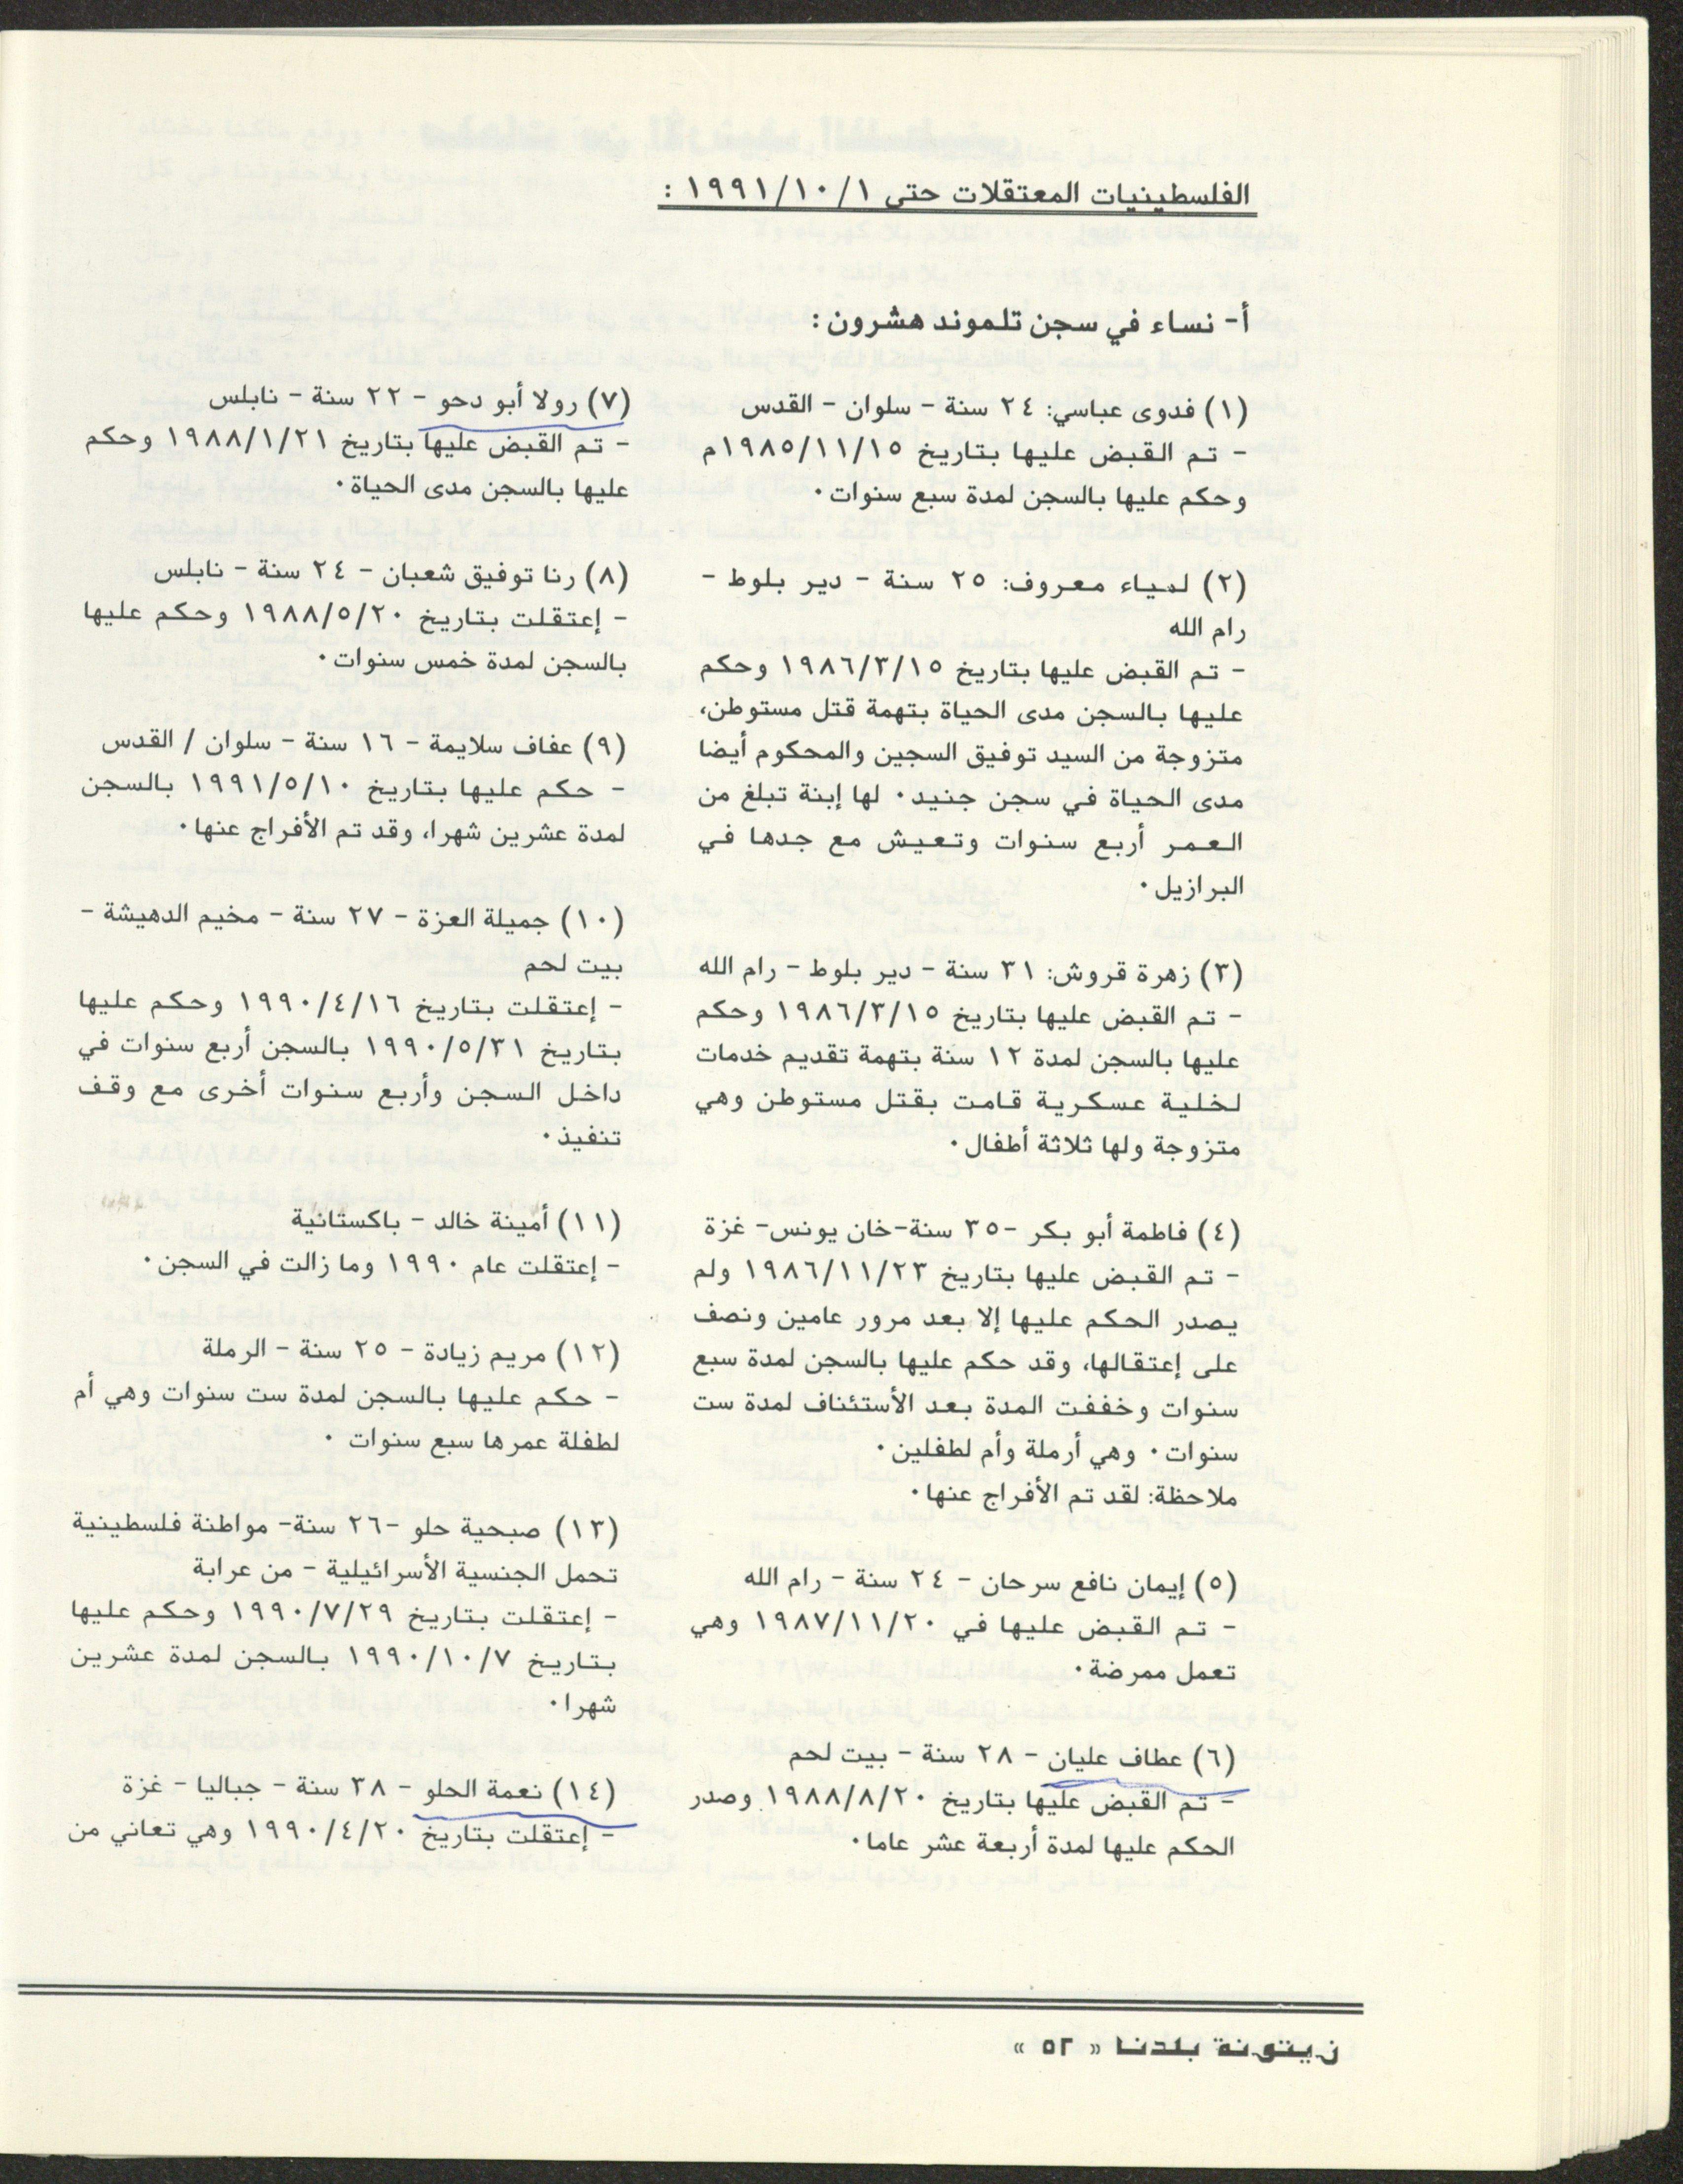 الفلسطينيات المعتقلات حتى ١٩٩١/١٠/١ :
أ- نساء في سجن تلموند هشرون :
(١) فدوى عباسي: ٢٤ سنة - سلوان - القدس
- تم القبض عليها بتاريخ ١٩٨٥/١١/١٥م
وحكم عليها بالسجن لمدة سبع سنوات.
(٢) لمياء معروف: ٢٥ سنة - دير بلوط -
رام الله
- تم القبض عليها بتاريخ ١٩٨٦/٣/١٥ وحكم
عليها بالسجن مدى الحياة بتهمة قتل مستوطن،
متزوجة من السيد توفيق السجين والمحكوم أيضا
مدى الحياة في سجن جنيد. لها إبنة تبلغ من
العمر أربع سنوات وتعيش مع جدها في
البرازيل.
(٣) زهرة قروش: ٣١ سنة - دير بلوط - رام الله
- تم القبض عليها بتاريخ ١٩٨٦/٣/١٥ وحكم
عليها بالسجن لمدة ١٢ سنة بتهمة تقديم خدمات
لخلية عسكرية قامت بقتل مستوطن وهي
متزوجة ولها ثلاثة أطفال.
(٤) فاطمة أبو بكر -٣٥ سنة-خان يونس- غزة
- تم القبض عليها بتاريخ ١٩٨٦/١١/٢٣ ولم
يصدر الحكم عليها إلا بعد مرور عامين ونصف
على إعتقالها، وقد حكم عليها بالسجن لمدة سبع
سنوات وخففت المدة بعد الأستئناف لمدة ست
سنوات. وهي أرملة وأم لطفلين.
ملاحظة: لقد تم الأفراج عنها.
(٥) إيمان نافع سرحان - ٢٤ سنة - رام الله
- تم القبض عليها في ١٩٨٧/١١/٢٠ وهي
تعمل ممرضة.
(٦) عطاف عليان - ٢٨ سنة - بيت لحم
- تم القبض عليها بتاريخ ١٩٨٨/٨/٢٠ وصدر
الحكم عليها لمدة أربعة عشر عاما.
(٧) رولا أبو دحو - ٢٢ سنة - نابلس
- تم القبض عليها بتاريخ ١٩٨٨/١/٢١ وحكم
عليها بالسجن مدى الحياة.
(٨) رنا توفيق شعبان - ٢٤ سنة - نابلس
- إعتقلت بتاريخ ١٩٨٨/٥/٢٠ وحكم عليها
بالسجن لمدة خمس سنوات.
(٩) عفاف سلايمة - ١٦ سنة - سلوان / القدس
- حكم عليها بتاريخ ١٩٩١/٥/١٠ بالسجن
لمدة عشرين شهرا، وقد تم الأفراج عنها.
(١٠) جميلة العزة - ٢٧ سنة - مخيم الدهيشة -
بيت لحم
- إعتقلت بتاريخ ١٩٩٠/٤/١٦ وحكم عليها
بتاريخ ١٩٩٠/٥/٣١ بالسجن أربع سنوات في
داخل السجن وأربع سنوات أخرى مع وقف
تنفيذ.
(١١) أمينة خالد - باكستانية
- إعتقلت عام ١٩٩٠ وما زالت في السجن.
(١٢) مريم زيادة - ٢٥ سنة - الرملة
- حكم عليها بالسجن لمدة ست سنوات وهي أم
لطفلة عمرها سبع سنوات .
(١٣) صبحية حلو -٢٦ سنة- مواطنة فلسطينية
تحمل الجنسية الأسرائيلية - من عرابة
- إعتقلت بتاريخ ١٩٩٠/٧/٢٩ وحكم عليها
بتاريخ ١٩٩٠/١٠/٧ بالسجن لمدة عشرين
شهرا.
(١٤) نعمة الحلو - ٣٨ سنة - جباليا - غزة
- إعتقلت بتاريخ ١٩٩٠/٤/٢٠ وهي تعاني من
زيتونة بلدنا « ٥٢ »